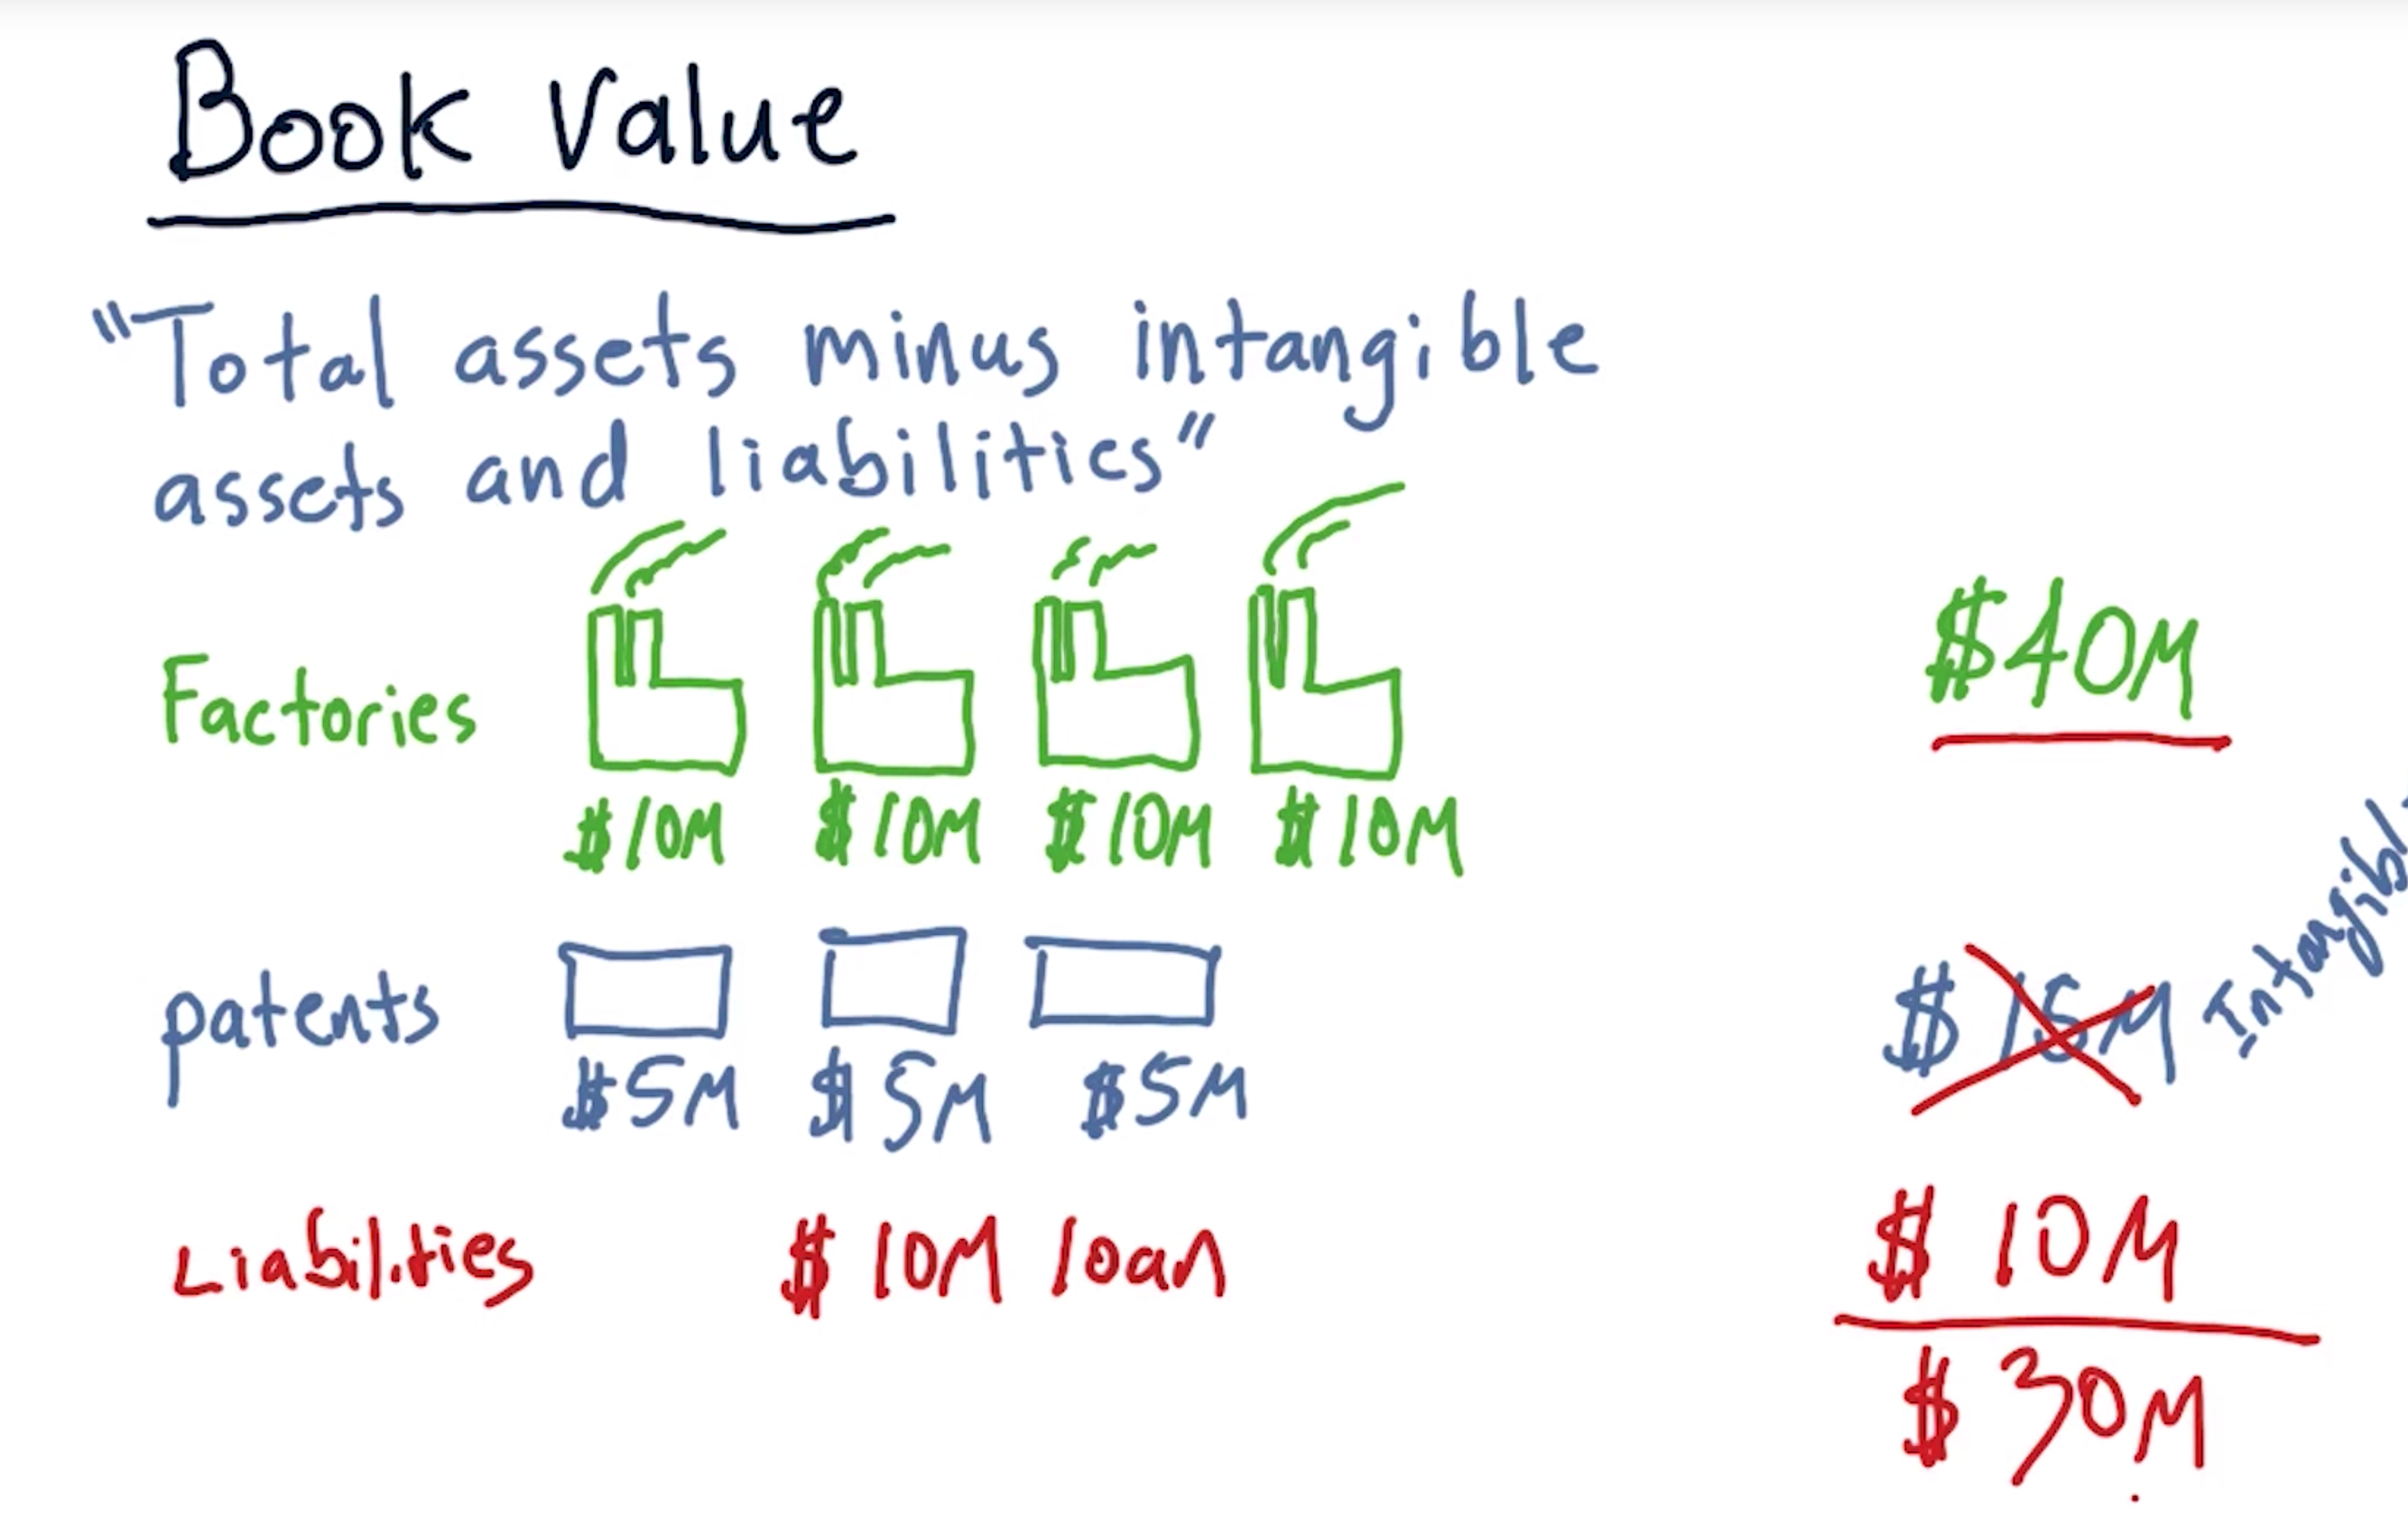 Book Value
"Total assets minus intangible
assets and liabilities"
Factories $40M
$10M $10M $10M $10M
patents $15M
$5M $5M $5M
Liabilities $10M loan $10M
$30M